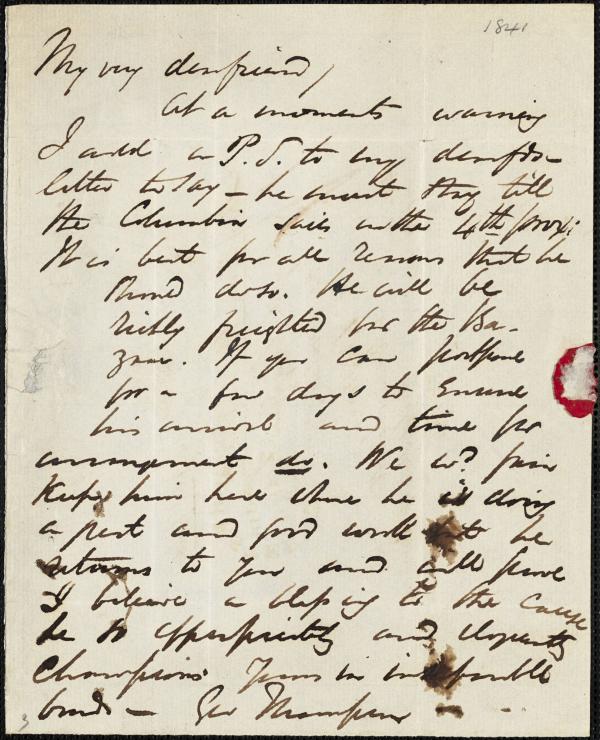 1841
My very dear friend,
At a moments warning
I add a P.S. to my dear
letter to say – he must stay till
the Columbia sails on the 4th prox:
It is best for all reasons that he
should do so. He will be
richly freighted for the Ba-
zaar. If you can postpone
for a few days to ensure
his arrival and time for
arrangement do. We wd. fain
keep him here where he is doing
a great and good work but he
returns to you and will prove
I believe a blessing to the cause
he so appropriately and eloquently
champions. Yours in inseparable
bonds – Geo Thompson
3